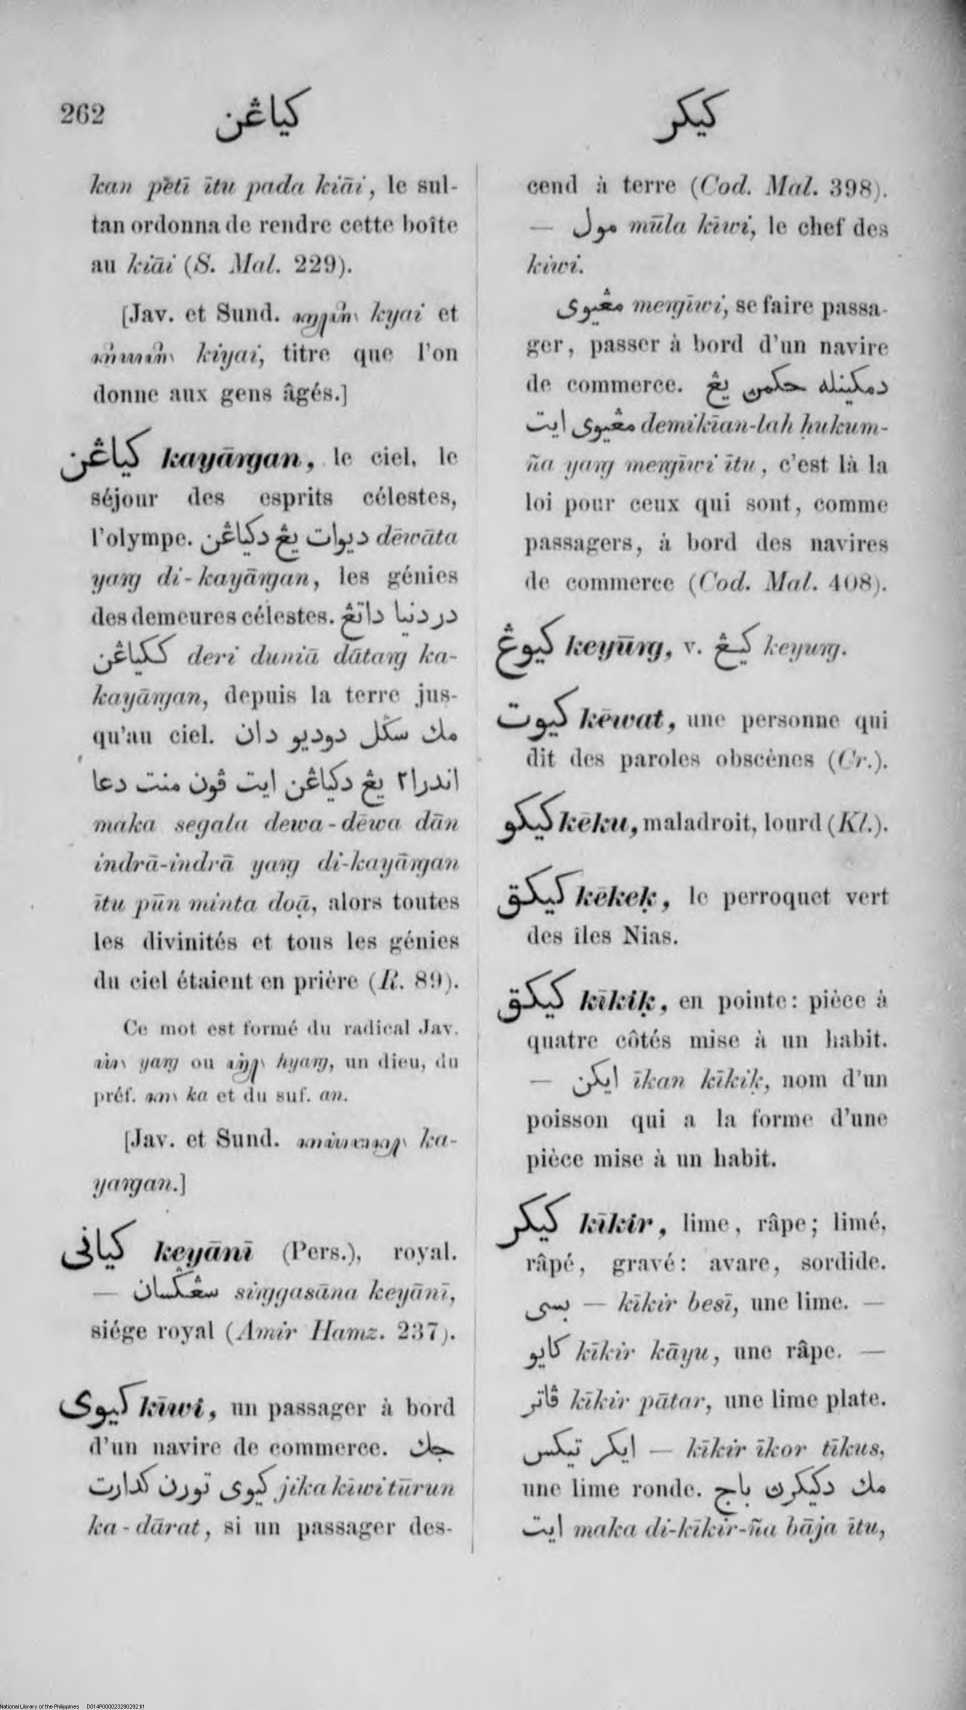 262
كياڠن
كيكر
kan pĕtī ītu pada kiāi, le sul-
tan ordonna de rendre cette boîte
au kiāi (S. Mal. 229).
[Jav. et Sund. kyai et
kiyai, titre que l'on
donne aux gens âgés.]
كياڠن kayāngan, le ciel, le
séjour des esprits célestes,
l'olympe. ديوات يڠ دكياڠن dēwāta
yang di-kayāngan, les génies
des demeures célestes. در دنيا داتڠ
ككياڠن deri duniā dātang ka-
kayāngan, depuis la terre jus-
qu'au ciel. مك سڬل دوديو دان
اندرا٢ يڠ دكياڠن ايت ڤون منت دعا
maka segala dewa-dēwa dān
indrā-indrā yang di-kayāngan
ītu pūn minta doạ̄, alors toutes
les divinités et tous les génies
du ciel étaient en prière (R. 89).
Ce mot est formé du radical Jav.
yang ou hyang, un dieu, du
préf. ka et du suf. an.
[Jav. et Sund. ka-
yangan.]
كياني keyānī (Pers.), royal.
— سڠڬسان singgasāna keyānī,
siége royal (Amir Hamz. 237).
كيوي kīwi, un passager à bord
d'un navire de commerce. جك
كيوي تورن كدارت jika kīwi tūrun
ka-dārat, si un passager des-
cend à terre (Cod. Mal. 398).
— مول mūla kīwi, le chef des
kiwi.
مڠيوي mengīwi, se faire passa-
ger, passer à bord d'un navire
de commerce. دمكينله حكمن يڠ
مڠيوي ايت demikīan-lah ḥukum-
ña yang mengīwi ītu, c'est là la
loi pour ceux qui sont, comme
passagers, à bord des navires
de commerce (Cod. Mal. 408).
كيوڠ keyūng, v. كيڠ keyung.
كيوت kēwat, une personne qui
dit des paroles obscènes (Cr.).
كيكو kēku, maladroit, lourd (Kl.).
كيكق kēkeḳ, le perroquet vert
des îles Nias.
كيكق kīkiḳ, en pointe: pièce à
quatre côtés mise à un habit.
— ايكن īkan kīkiḳ, nom d'un
poisson qui a la forme d'une
pièce mise à un habit.
كيكر kīkir, lime, râpe; limé,
râpé, gravé: avare, sordide.
بسي — kīkir besī, une lime. —
كايو kīkir kāyu, une râpe. —
ڤاتر kīkir pātar, une lime plate.
ايكر تيكس — kīkir īkor tīkus,
une lime ronde. مك دكيكرن باج
ايت maka di-kīkir-ña bāja ītu,
National Library of the Philippines